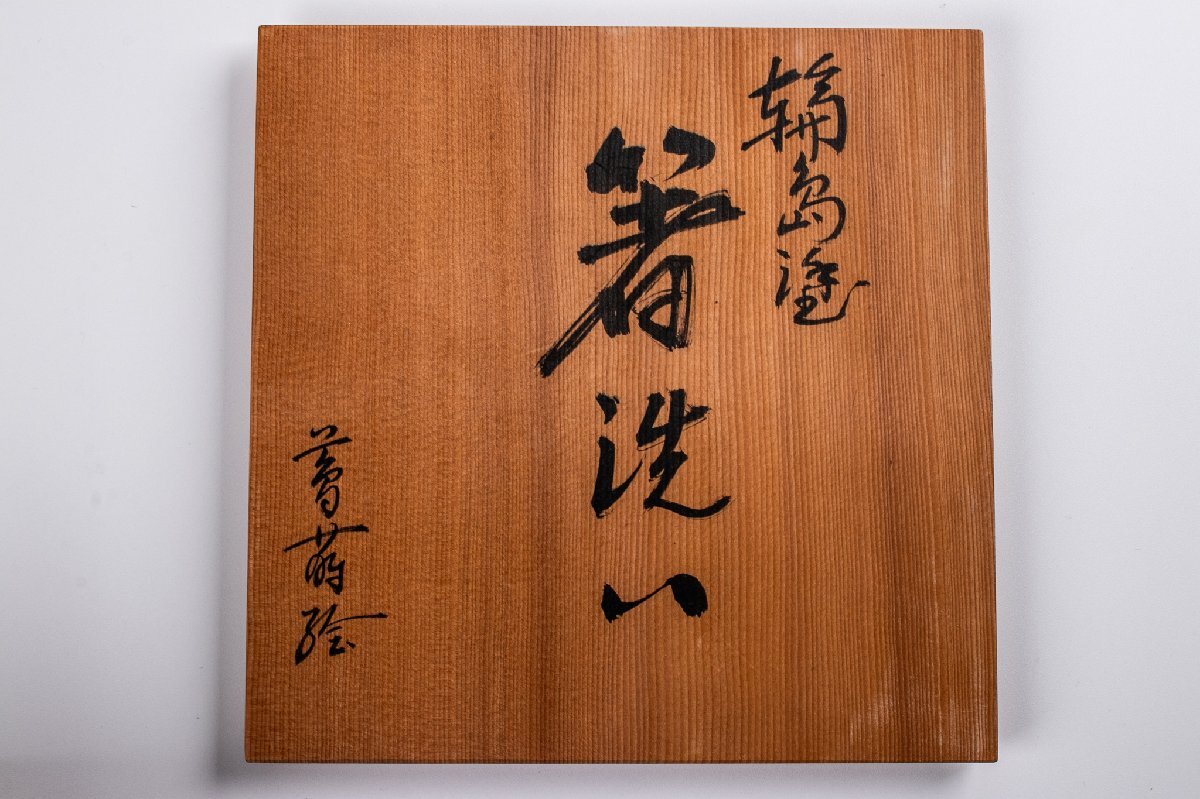 輪島塗
箸洗い
蔦蒔絵